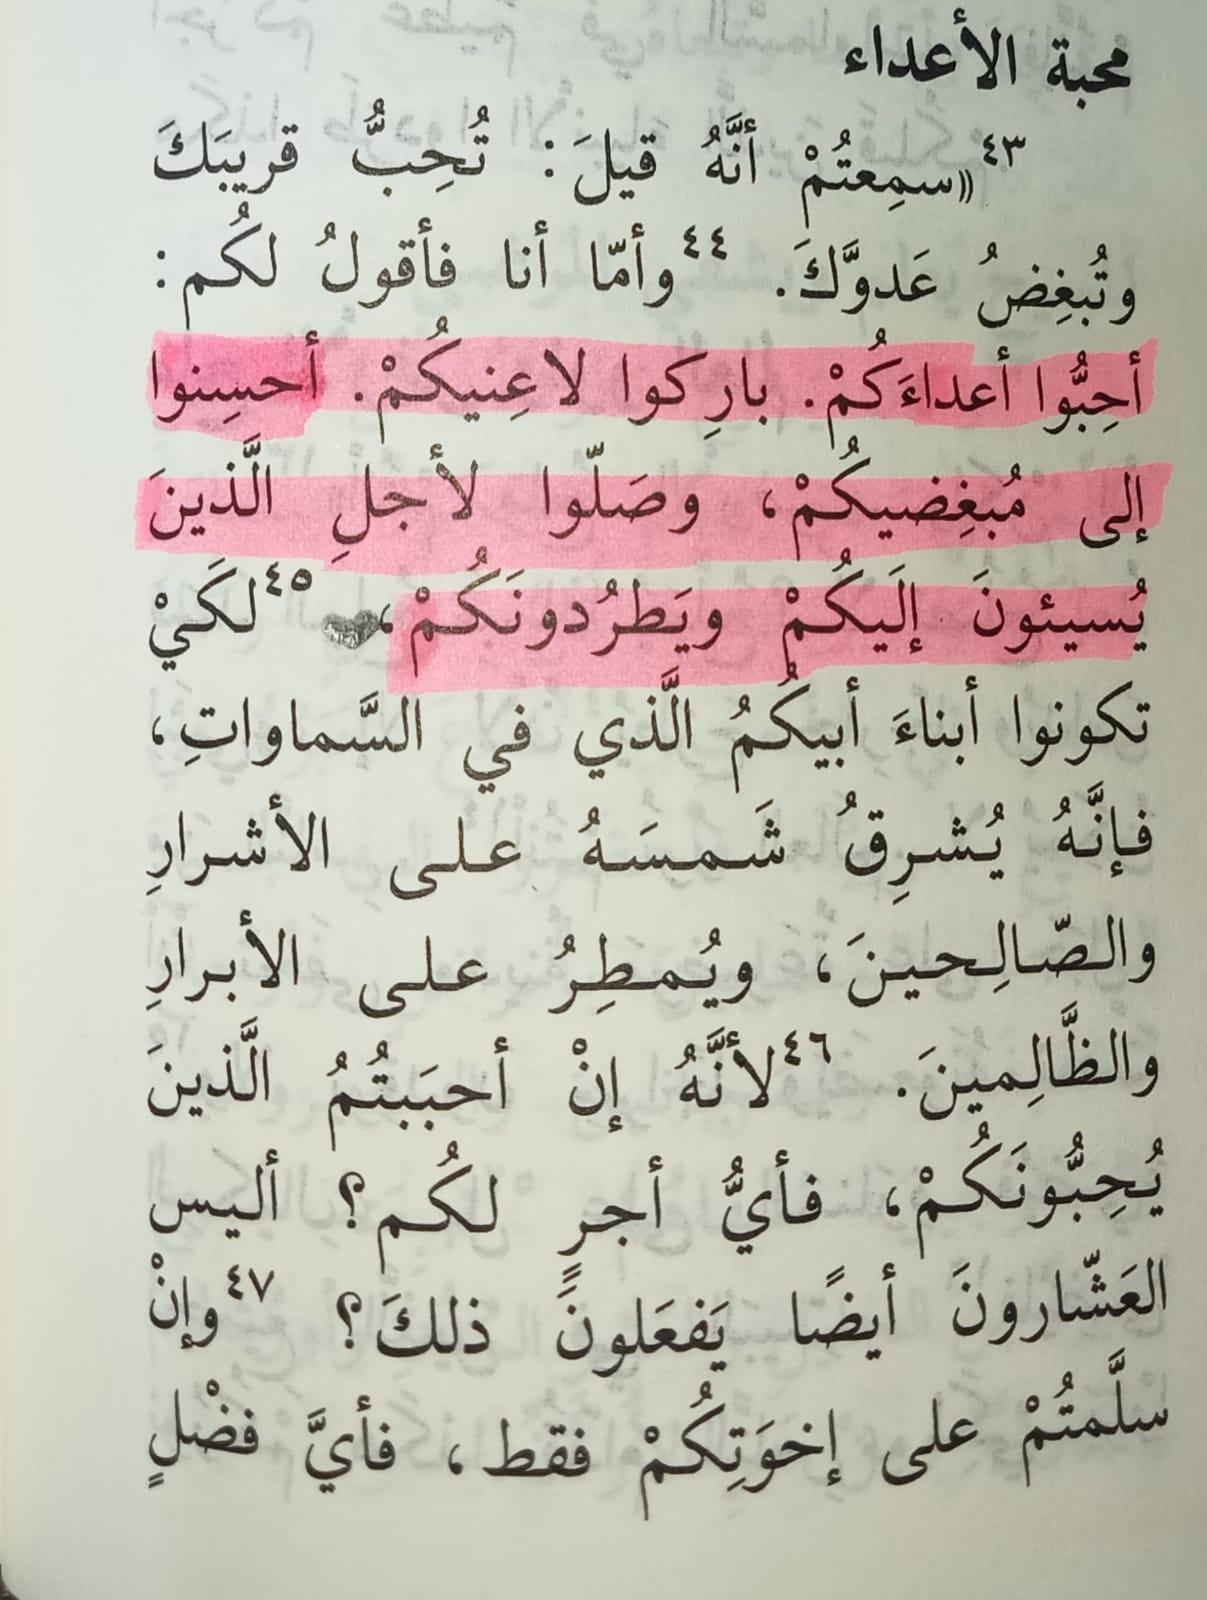 محبة الأعداء
٤٣«سمِعتُمْ أنَّهُ قيلَ: تُحِبُّ قريبَكَ
وتُبغِضُ عَدوَّكَ. ٤٤وأمّا أنا فأقولُ لكُم:
أحِبُّوا أعداءَكُمْ. بارِكوا لاعِنيكُمْ. أحسِنوا
إلى مُبغِضيكُمْ، وصَلّوا لأجلِ الَّذينَ
يُسيئونَ إلَيكُمْ ويَطرُدونَكُمْ، ٤٥لكَيْ
تكونوا أبناءَ أبيكُمُ الَّذي في السَّماواتِ،
فإنَّهُ يُشرِقُ شَمسَهُ على الأشرارِ
والصّالِحينَ، ويُمطِرُ على الأبرارِ
والظَّالِمينَ. ٤٦لأنَّهُ إنْ أحبَبتُمُ الَّذينَ
يُحِبُّونَكُمْ، فأيُّ أجرٍ لكُم؟ أليس
العَشّارونَ أيضًا يَفعَلونَ ذلكَ؟ ٤٧وإنْ
سلَّمتُمْ على إخوَتِكُمْ فقط، فأيَّ فضْلٍ